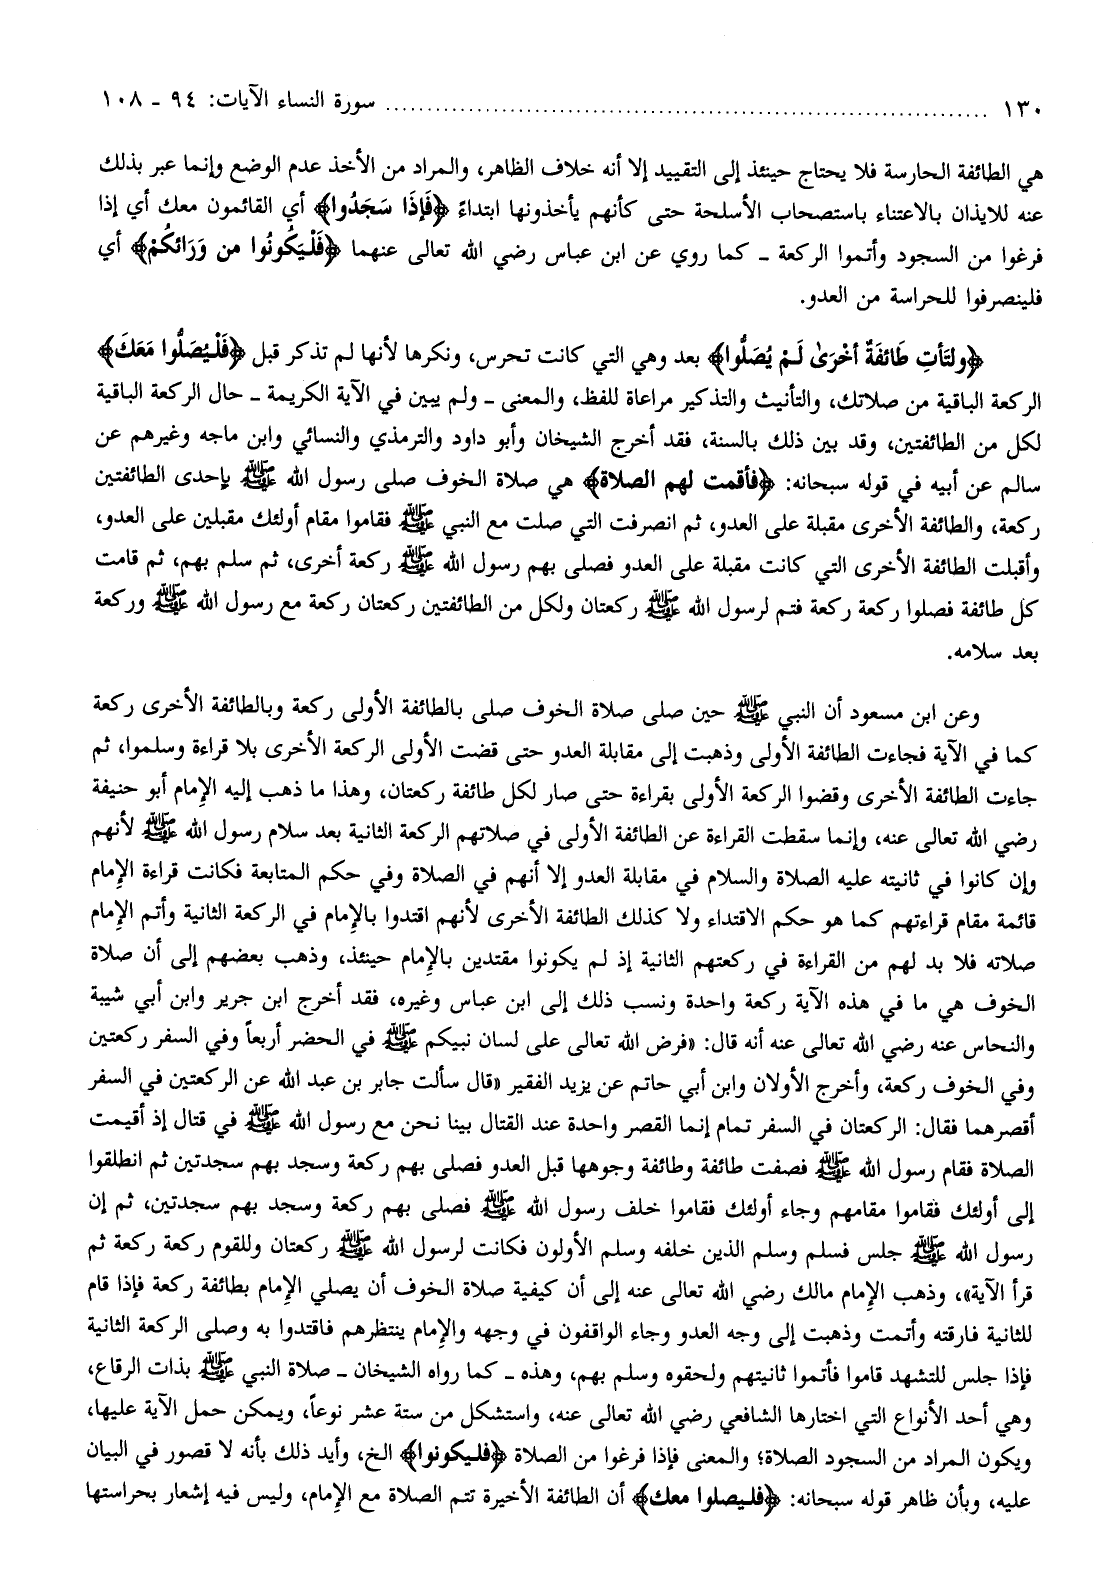 ١٣٠ ........................................ سورة النساء الآيات: ٩٤ ـ ١٠٨
هي الطائفة الحارسة فلا يحتاج حينئذ إلى التقييد إلا أنه خلاف الظاهر، والمراد من الأخذ عدم الوضع وإنما عبر بذلك
عنه للايذان بالاعتناء باستصحاب الأسلحة حتى كأنهم يأخذونها ابتداءً ﴿فَإِذَا سَجَدُوا﴾ أي القائمون معك أي إذا
فرغوا من السجود وأتموا الركعة ـ كما روي عن ابن عباس رضي الله تعالى عنهما ﴿فَلْيَكُونُوا من وَرَائكُمْ﴾ أي
فلينصرفوا للحراسة من العدو.
﴿ولتَأتِ طَائفَةٌ أخْرَىٰ لَمْ يُصَلُّوا﴾ بعد وهي التي كانت تحرس، ونكرها لأنها لم تذكر قبل ﴿فَلْيُصَلُّوا مَعَكَ﴾
الركعة الباقية من صلاتك، والتأنيث والتذكير مراعاة للفظ، والمعنى ـ ولم يبين في الآية الكريمة ـ حال الركعة الباقية
لكل من الطائفتين، وقد بين ذلك بالسنة، فقد أخرج الشيخان وأبو داود والترمذي والنسائي وابن ماجه وغيرهم عن
سالم عن أبيه في قوله سبحانه: ﴿فأقمت لهم الصلاة﴾ هي صلاة الخوف صلى رسول الله ﷺ بإحدى الطائفتين
ركعة، والطائفة الأخرى مقبلة على العدو، ثم انصرفت التي صلت مع النبي ﷺ فقاموا مقام أولئك مقبلين على العدو،
وأقبلت الطائفة الأخرى التي كانت مقبلة على العدو فصلى بهم رسول الله ﷺ ركعة أخرى، ثم سلم بهم، ثم قامت
كل طائفة فصلوا ركعة ركعة فتم لرسول الله ﷺ ركعتان ولكل من الطائفتين ركعتان ركعة مع رسول الله ﷺ وركعة
بعد سلامه.
وعن ابن مسعود أن النبي ﷺ حين صلى صلاة الخوف صلى بالطائفة الأولى ركعة وبالطائفة الأخرى ركعة
كما في الآية فجاءت الطائفة الأولى وذهبت إلى مقابلة العدو حتى قضت الأولى الركعة الأخرى بلا قراءة وسلموا، ثم
جاءت الطائفة الأخرى وقضوا الركعة الأولى بقراءة حتى صار لكل طائفة ركعتان، وهذا ما ذهب إليه الإمام أبو حنيفة
رضي الله تعالى عنه، وإنما سقطت القراءة عن الطائفة الأولى في صلاتهم الركعة الثانية بعد سلام رسول الله ﷺ لأنهم
وإن كانوا في ثانيته عليه الصلاة والسلام في مقابلة العدو إلا أنهم في الصلاة وفي حكم المتابعة فكانت قراءة الإمام
قائمة مقام قراءتهم كما هو حكم الاقتداء ولا كذلك الطائفة الأخرى لأنهم اقتدوا بالإمام في الركعة الثانية وأتم الإمام
صلاته فلا بد لهم من القراءة في ركعتهم الثانية إذ لم يكونوا مقتدين بالإمام حينئذ، وذهب بعضهم إلى أن صلاة
الخوف هي ما في هذه الآية ركعة واحدة ونسب ذلك إلى ابن عباس وغيره، فقد أخرج ابن جرير وابن أبي شيبة
والنحاس عنه رضي الله تعالى عنه أنه قال: «فرض الله تعالى على لسان نبيكم ﷺ في الحضر أربعاً وفي السفر ركعتين
وفي الخوف ركعة، وأخرج الأولان وابن أبي حاتم عن يزيد الفقير «قال سألت جابر بن عبد الله عن الركعتين في السفر
أقصرهما فقال: الركعتان في السفر تمام إنما القصر واحدة عند القتال بينا نحن مع رسول الله ﷺ في قتال إذ أقيمت
الصلاة فقام رسول الله ﷺ فصفت طائفة وطائفة وجوهها قبل العدو فصلى بهم ركعة وسجد بهم سجدتين ثم انطلقوا
إلى أولئك فقاموا مقامهم وجاء أولئك فقاموا خلف رسول الله ﷺ فصلى بهم ركعة وسجد بهم سجدتين، ثم إن
رسول الله ﷺ جلس فسلم وسلم الذين خلفه وسلم الأولون فكانت لرسول الله ﷺ ركعتان وللقوم ركعة ركعة ثم
قرأ الآية»، وذهب الإمام مالك رضي الله تعالى عنه إلى أن كيفية صلاة الخوف أن يصلي الإمام بطائفة ركعة فإذا قام
للثانية فارقته وأتمت وذهبت إلى وجه العدو وجاء الواقفون في وجهه والإمام ينتظرهم فاقتدوا به وصلى الركعة الثانية
فإذا جلس للتشهد قاموا فأتموا ثانيتهم ولحقوه وسلم بهم، وهذه ـ كما رواه الشيخان ـ صلاة النبي ﷺ بذات الرقاع،
وهي أحد الأنواع التي اختارها الشافعي رضي الله تعالى عنه، واستشكل من ستة عشر نوعاً، ويمكن حمل الآية عليها،
ويكون المراد من السجود الصلاة؛ والمعنى فإذا فرغوا من الصلاة ﴿فليكونوا﴾ الخ، وأيد ذلك بأنه لا قصور في البيان
عليه، وبأن ظاهر قوله سبحانه: ﴿فليصلوا معك﴾ أن الطائفة الأخيرة تتم الصلاة مع الإمام، وليس فيه إشعار بحراستها